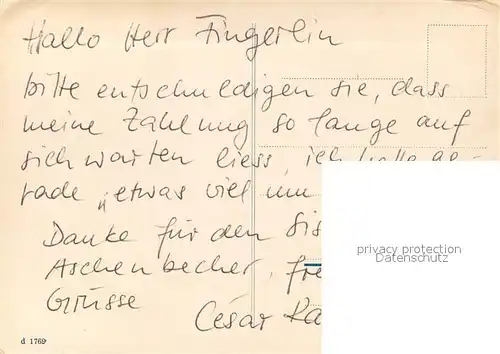 Hallo Herr Fingerlin
bitte entschuldigen sie, dass
meine Zahlung so lange auf
sich warten liess, ich hatte ge-
rade „etwas viel um
Danke für den
Aschenbecher,
Grüsse
César
d 1769
privacy protection
Datenschutz